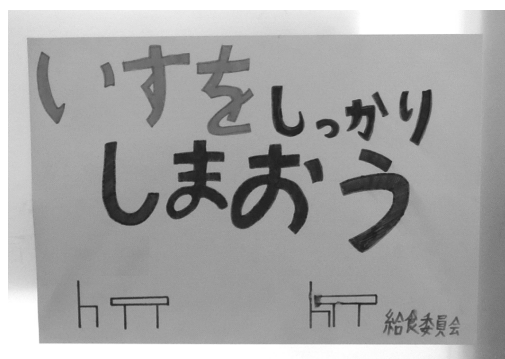 いすをしっかり
しまおう
給食委員会